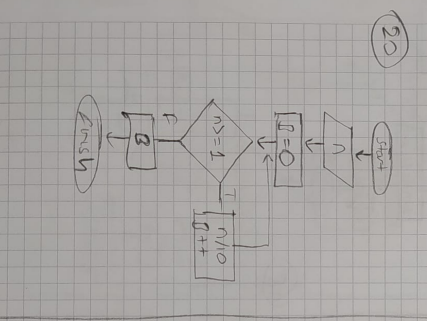 20
Start
n
B=0
n>=1
T
n/10
B++
F
B
finish